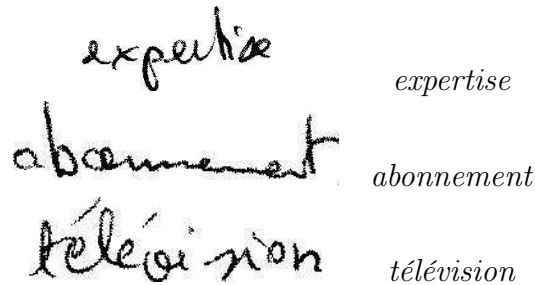 expertise expertise
abonnement abonnement
télévision télévision